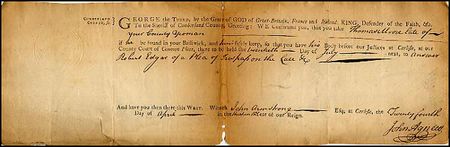 CUMBERLAND
GEORGE the THIRD, by the Grace of GOD of Great-Britain, France and Ireland, KING, Defender of the Faith, &c.
To the Sheriff of Cumberland County, Greeting: WE Command you, that you take Thomas late of
your County Yeoman
if he be found in your Bailiwick, and him safely keep, so that you have his Body before our Justices at Carlisle, at our
County Court of Common Pleas, there to be held the Day of July next, to Answer
Robert Edgar of a Plea of Trespass on the Case &c
And have you then there this Writ. Witness John Armstrong Esq, at Carlisle, the Twenty fourth
Day of April in the Year of our Reign.
John Agnew